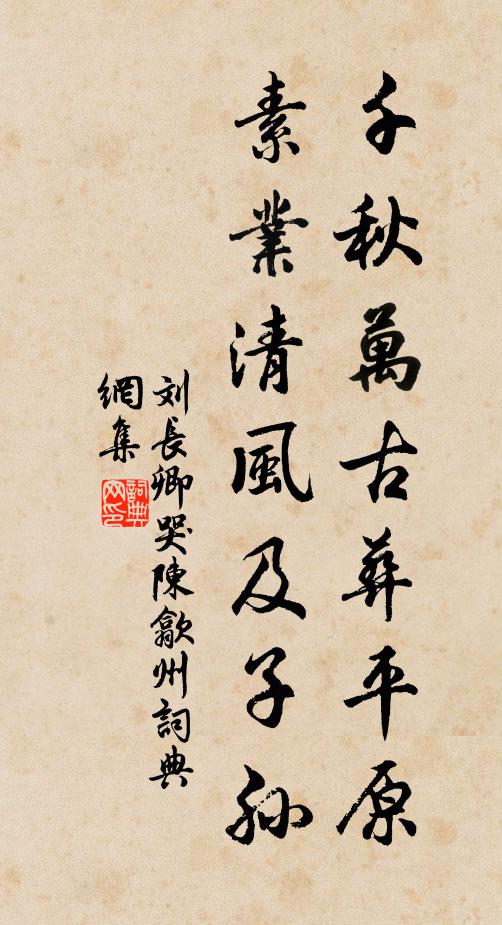 千秋萬古葬平原
素業清風及子孙
刘長卿哭陳歙州詞典
網集
詞典
网印